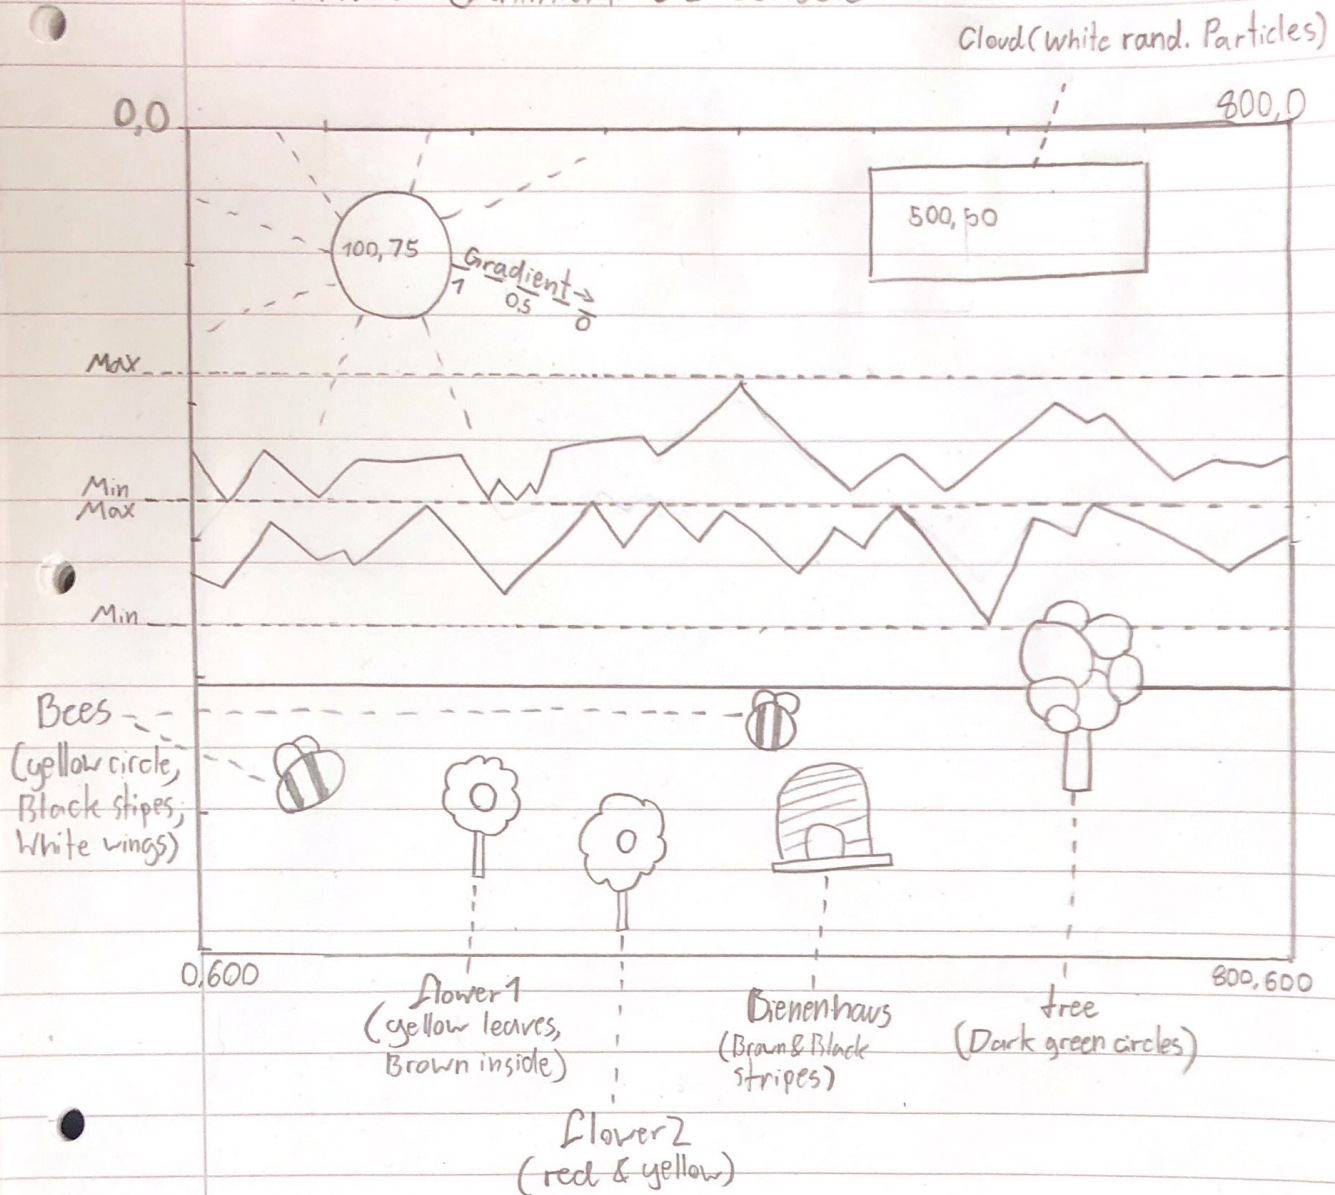 Cloud (White rand. Particles)
0,0
800,0
100,75
500,50
Gradient
1
0.5
0
Max
Min
Max
Min
Bees
(yellow circle,
Black stipes,
White wings)
0,600
800,600
flower1
(yellow leaves,
Brown inside)
Bienenhaus
(Brown & Black
stripes)
tree
(Dark green circles)
flower2
(red & yellow)